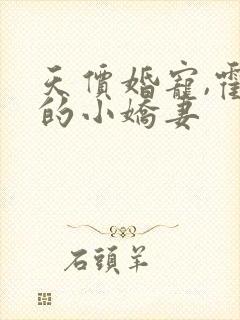 天價婚寵,霍
的小嬌妻
石頭羊